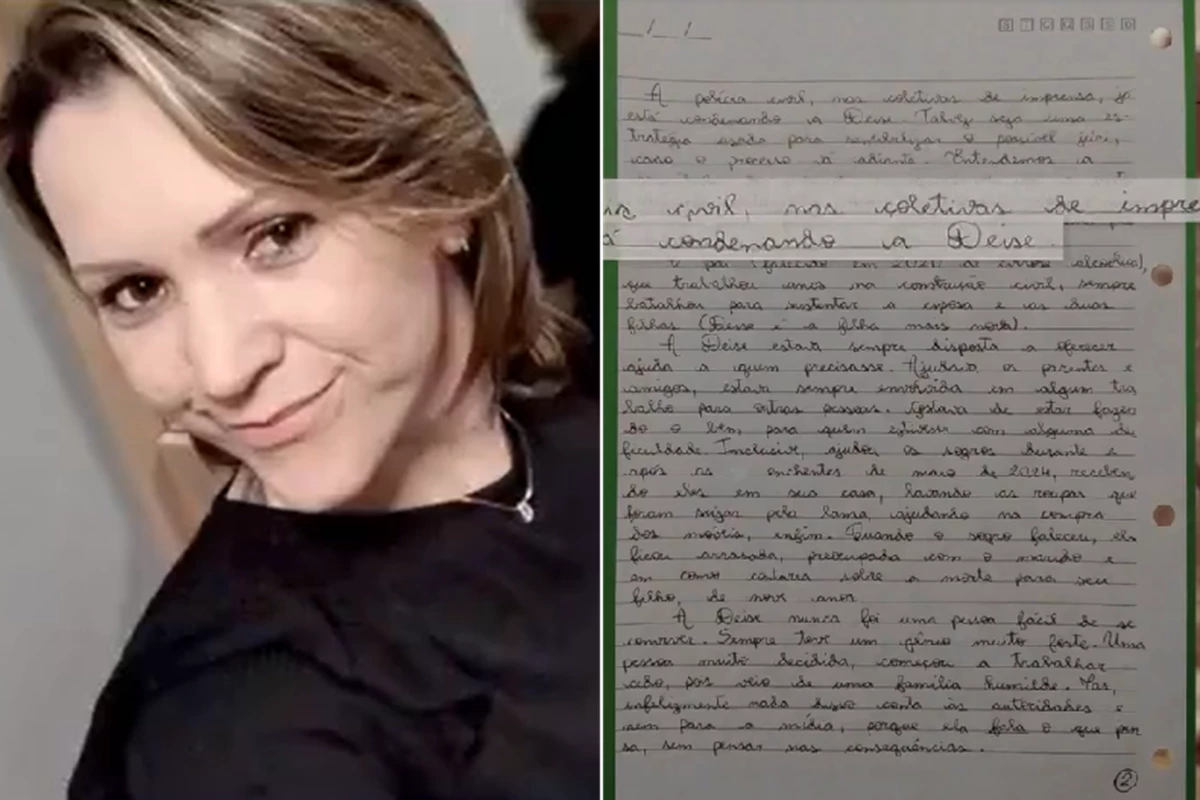 __/__/__
S T Q Q S S D
A polícia civil, nas coletivas de imprensa, já
está condenando a Deise. Talvez seja uma es-
tratégia usada para o possível júri,
caso o processo vá adiante. Entendemos a
civil, nas coletivas de impre
condenando a Deise.
O pai (falecido em 2021 de cirrose alcoólica),
que trabalhou anos na construção civil, sempre
batalhou para sustentar a esposa e as duas
filhas (Deise é a filha mais nova).
A Deise estava sempre disposta a oferecer
ajuda a quem precisasse. Ajudava os parentes e
amigos, estava sempre envolvida em algum tra
balho para outras pessoas. Gostava de estar fazen
do o bem, para quem estivesse com alguma di
ficuldade. Inclusive, ajudou os sogros durante e
após as enchentes de maio de 2024, receben
do eles em sua casa, lavando as roupas que
foram sujas pela lama, ajudando na compra
dos móveis, enfim. Quando o sogro faleceu, ela
ficou arrasada, preocupada com o marido e
em como contaria sobre a morte para seu
filho, de nove anos.
A Deise nunca foi uma pessoa fácil de se
conviver. Sempre teve um gênio muito forte. Uma
pessoa muito decidida, começou a trabalhar
cedo, pois veio de uma família humilde. Mas,
infelizmente nada disso conta às autoridades e
nem para a mídia, porque ela fala o que pen
sa, sem pensar nas consequências.
2